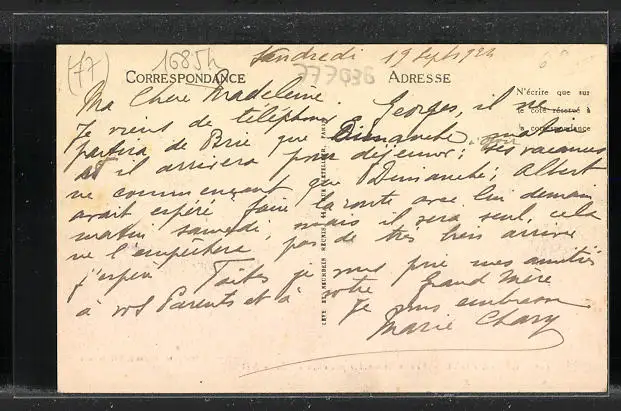 (77) 1685h Vendredi 19 Sept 1924
777036
CORRESPONDANCE ADRESSE
N'écrire que sur
le côté réservé à
la correspondance
Ma Chère Madeleine.
Je viens de téléphoner Georges, il ne
partira de Brie que Dimanche matin
et il arrivera pour déjeuner; ses vacances
ne commençant que Dimanche; Albert
avait espéré faire la route avec lui demain
matin samedi, mais il sera seul, cela
ne l'empêchera pas de très bien arriver
j'espère. Faites je vous prie mes amitiés
à vos Parents et à votre Grand Mère
Je vous embrasse
Marie Chary
LEVY ET NEURDEIN RÉUNIS, 44, RUE LETELLIER, PARIS